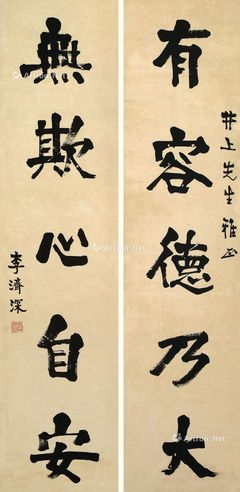 井上先生雅正
有容德乃大
無欺心自安
李濟深
Artron.Net